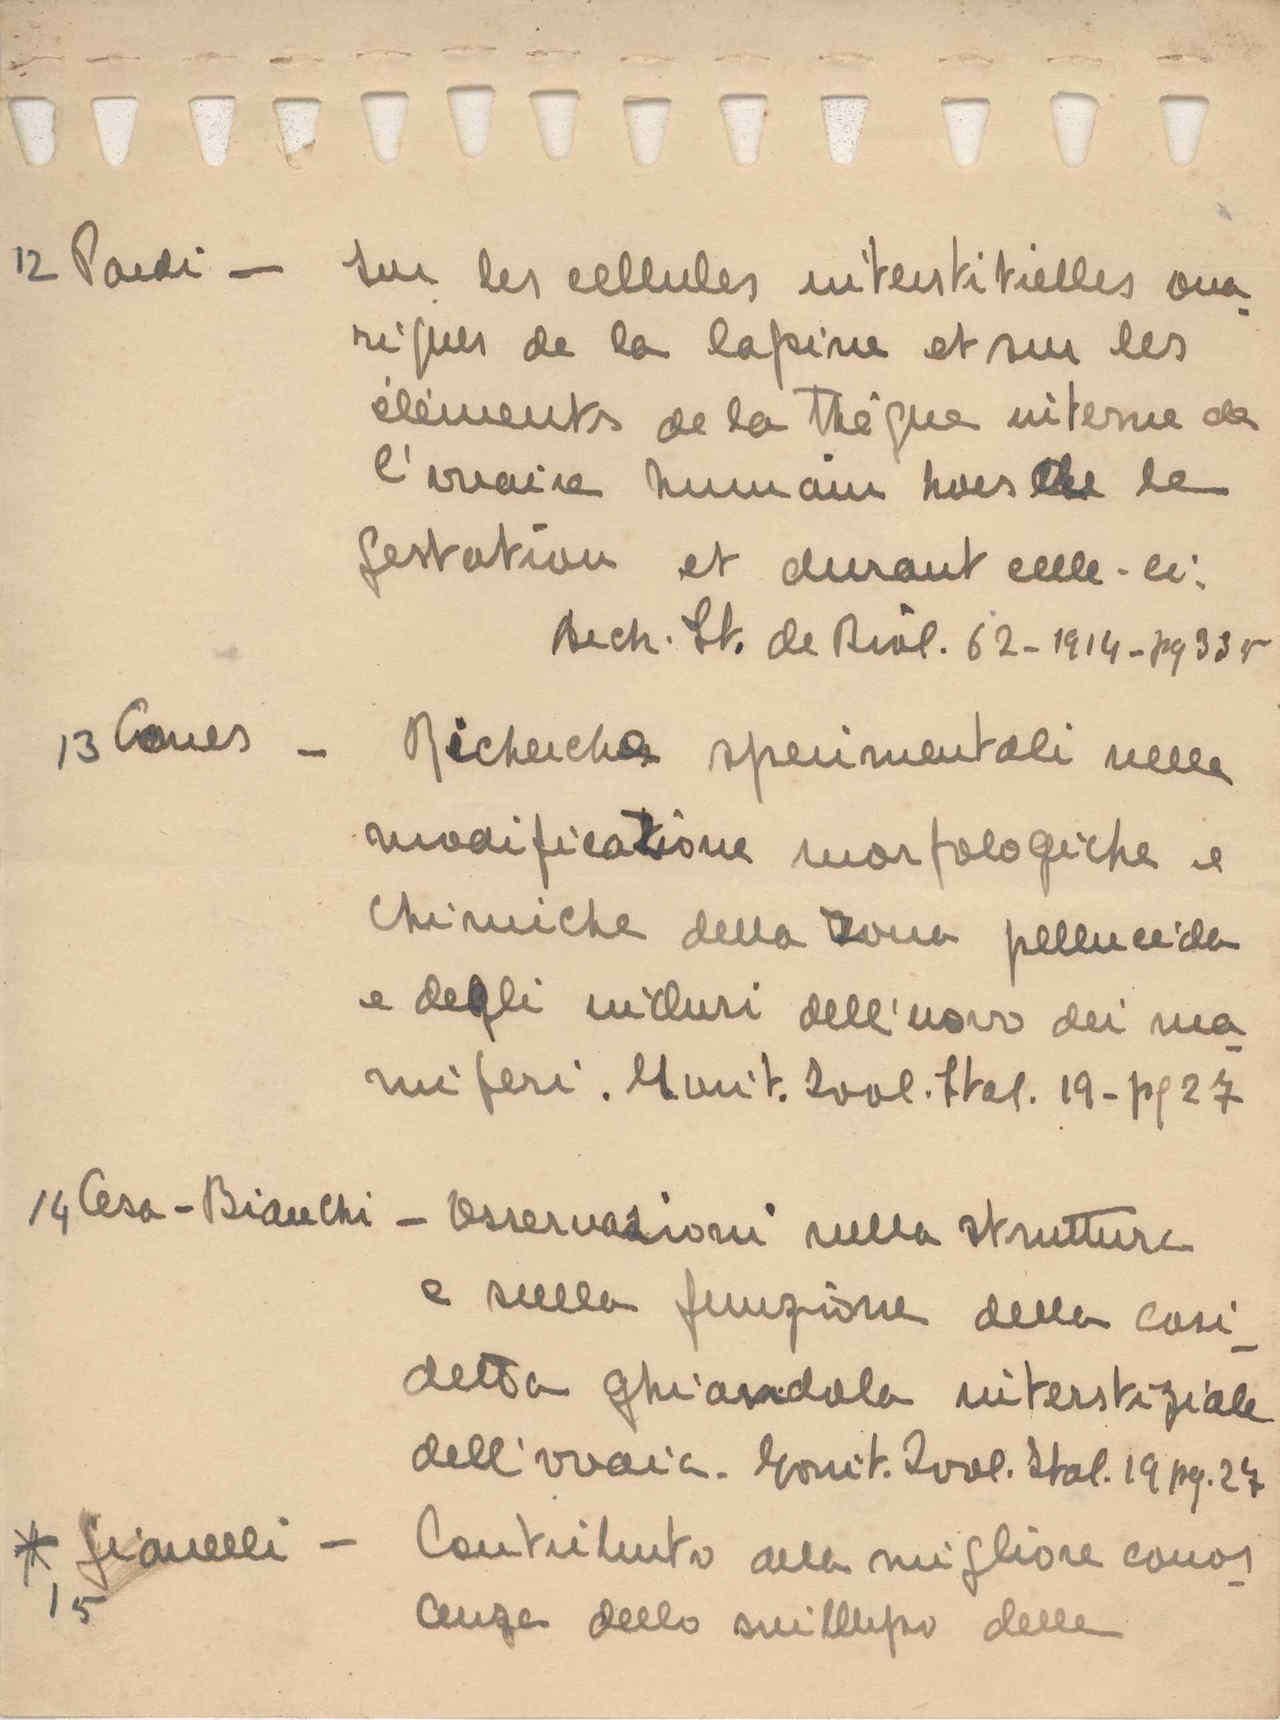 12 Pardi — Sur les cellules interstitielles ova-
riques de la lapine et sur les
éléments de la thèque interne de
l'ovaire humain hors de la
gestation et durant celle-ci:
Arch. It. de Biol. 62 - 1914 - pg 335
13 Comes — Richerche sperimentali nelle
modificazione morfologiche e
chimiche della zona pellucida
e degli inclusi dell'uovo dei ma-
miferi. Monit. Zool. Ital. 19 - pg 27
14 Cesa-Bianchi — Osservazioni sulla struttura
e sulla funzione della cosi-
detta ghiandola interstiziale
dell'ovaia. Monit. Zool. Ital. 19 pg. 27
* Gianelli — Contributo alla migliore conos-
15 cenza dello svillupo delle